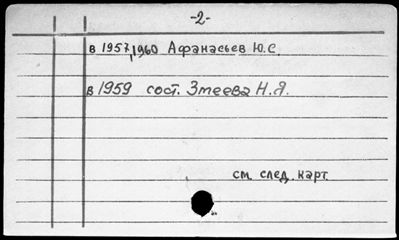 -2-
в 1957, 1960 Афанасьев Ю.С.
в 1959 сост. Змеева Н.Я.
см. след. карт.